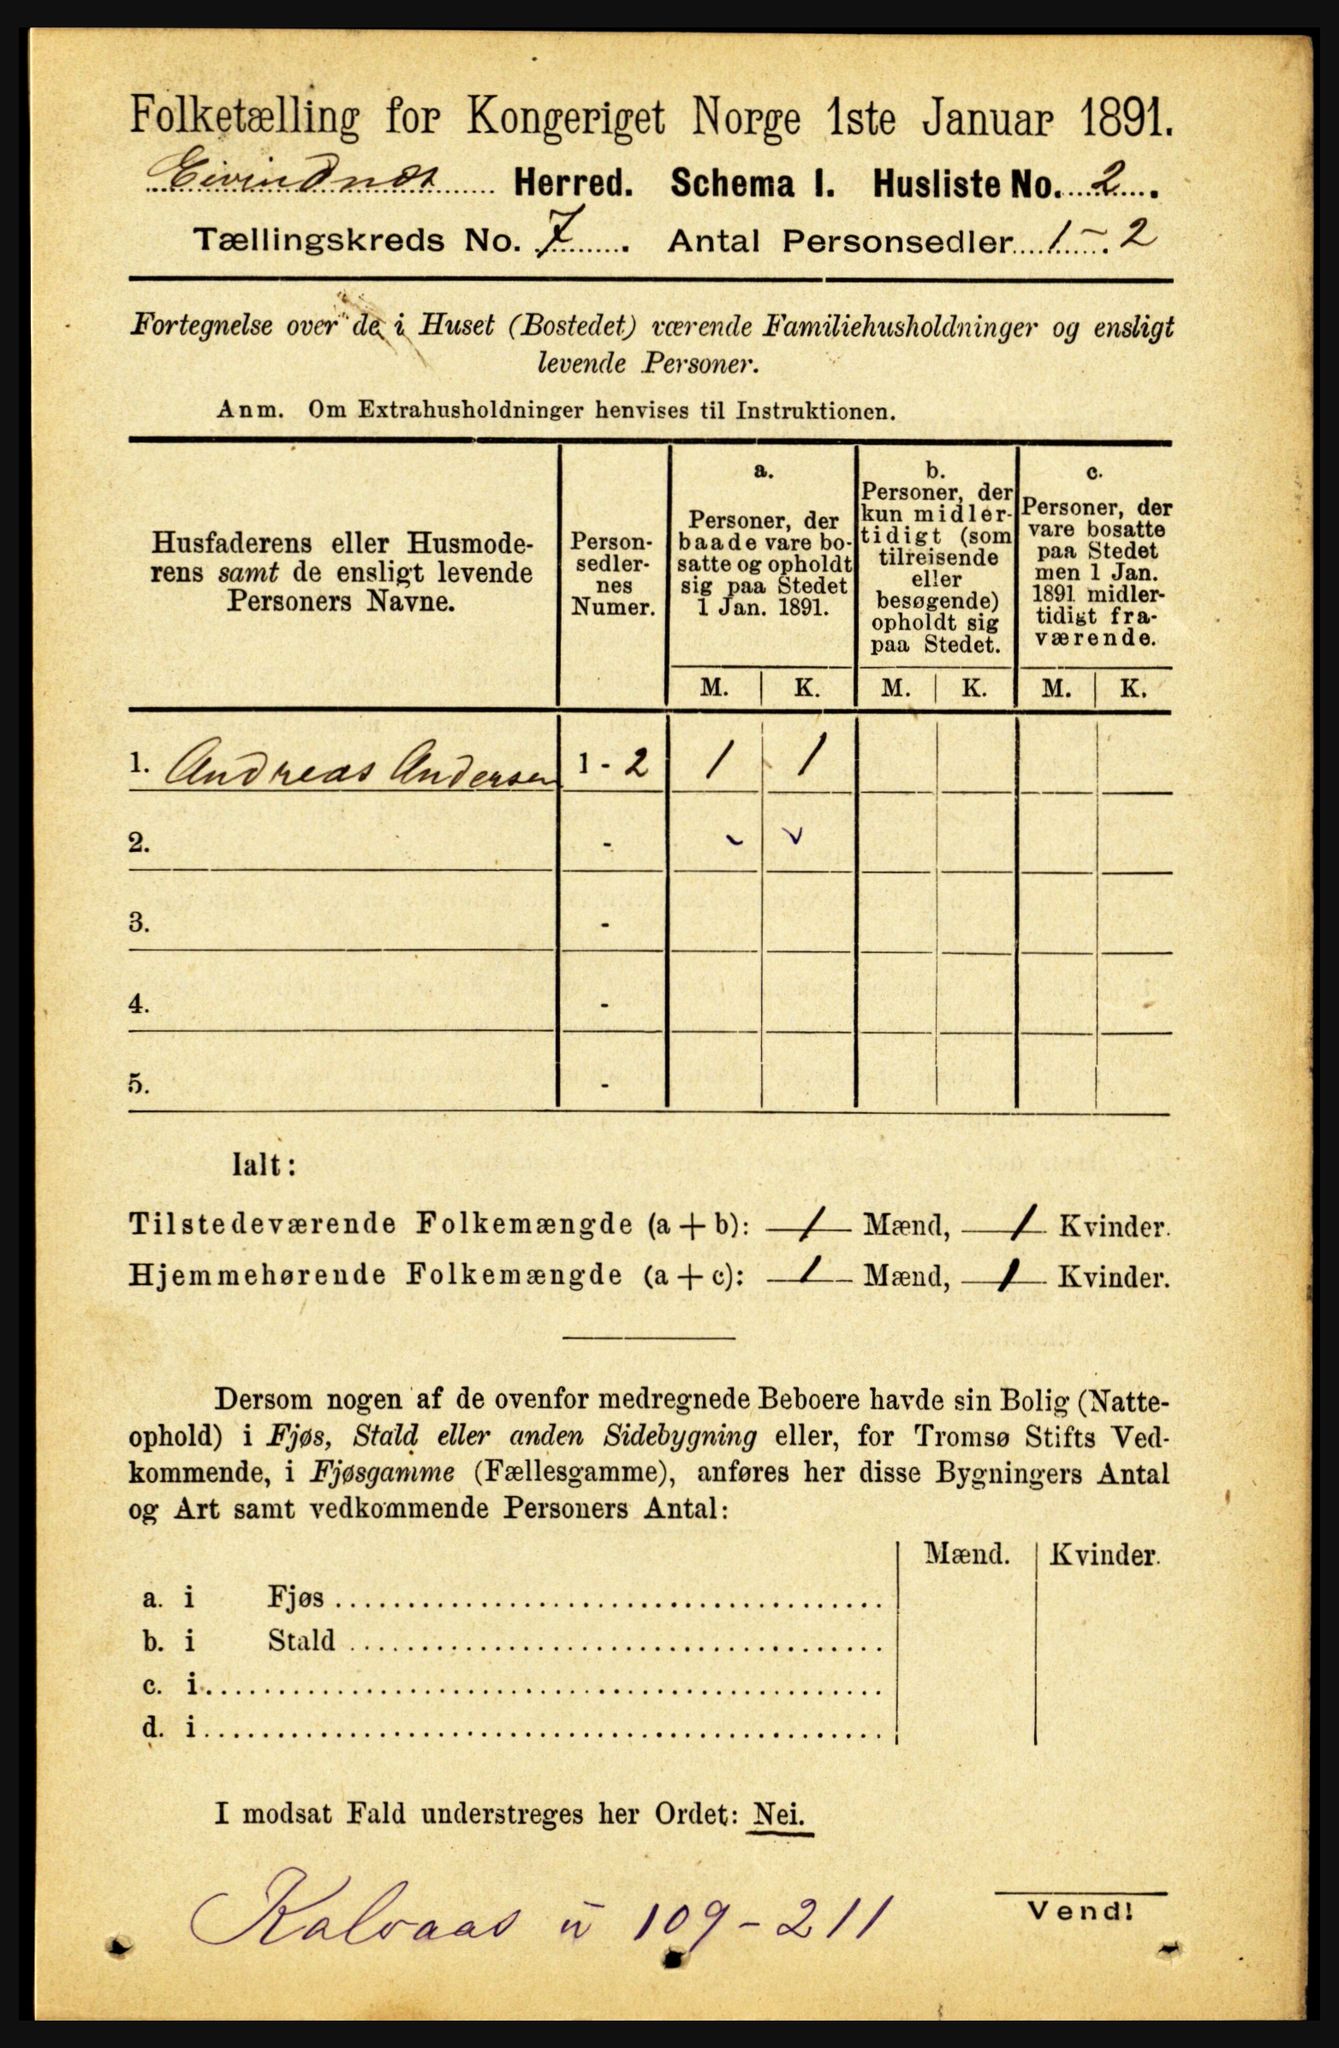 Folketælling for Kongeriget Norge 1ste Januar 1891.
Herred. Schema I. Husliste No. 2.
Tællingskreds No. 7. Antal Personsedler 1-2
Fortegnelse over de i Huset (Bostedet) værende Familiehusholdninger og ensligt
levende Personer.
Anm. Om Extrahusholdninger henvises til Instruktionen.
Husfaderens eller Husmode-
rens samt de ensligt levende
Personers Navne.
Person-
sedler-
nes
Numer.
a.
Personer, der
baade vare bo-
satte og opholdt
sig paa Stedet
1 Jan. 1891.
b.
Personer, der
kun midler-
tidigt (som
tilreisende
eller
besøgende)
opholdt sig
paa Stedet.
c.
Personer, der
vare bosatte
paa Stedet
men 1 Jan.
1891 midler-
tidigt fra-
værende.
M. K. M. K. M. K.
1. Andreas Andersen 1 - 2 1 1
2. -
3. -
4. -
5. -
Ialt:
Tilstedeværende Folkemængde (a + b): 1 Mænd, 1 Kvinder.
Hjemmehørende Folkemængde (a + c): 1 Mænd, 1 Kvinder.
Dersom nogen af de ovenfor medregnede Beboere havde sin Bolig (Natte-
ophold) i Fjøs, Stald eller anden Sidebygning eller, for Tromsø Stifts Ved-
kommende, i Fjøsgamme (Fællesgamme), anføres her disse Bygningers Antal
og Art samt vedkommende Personers Antal:
Mænd. Kvinder.
a. i Fjøs
b. i Stald
c. i
d. i
I modsat Fald understreges her Ordet: Nei.
Kalvaas 109-211
Vend!